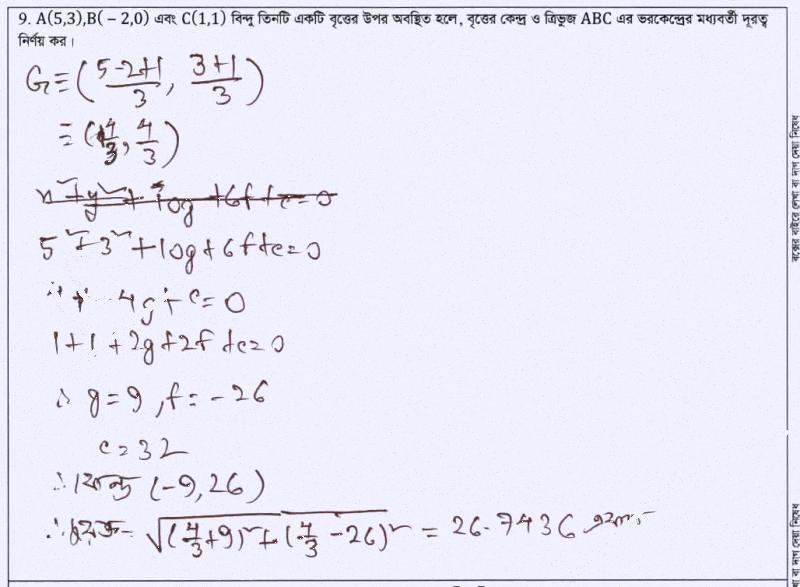 9. A(5,3),B( − 2,0) এবং C(1,1) বিন্দু তিনটি একটি বৃত্তের উপর অবস্থিত হলে, বৃত্তের কেন্দ্র ও ত্রিভুজ ABC এর ভরকেন্দ্রের মধ্যবর্তী দূরত্ব
নির্ণয় কর।
G ≡ (5-2+1/3, 3+1/3)
≡ (4/3, 4/3)
x²+y²+10g+6f+c=0
5²+3²+10g+6f+c=0
4 - 4g + c = 0
1+1+2g+2f+c=0
∴ g=9, f=-26
c=32
∴ কেন্দ্র (-9,26)
∴ দূরত্ব = √(4/3+9)²+(4/3-26)² = 26.7436 একক
বক্সের বাইরে লেখা বা দাগ দেয়া নিষেধ
বা দাগ দেয়া নিষেধ